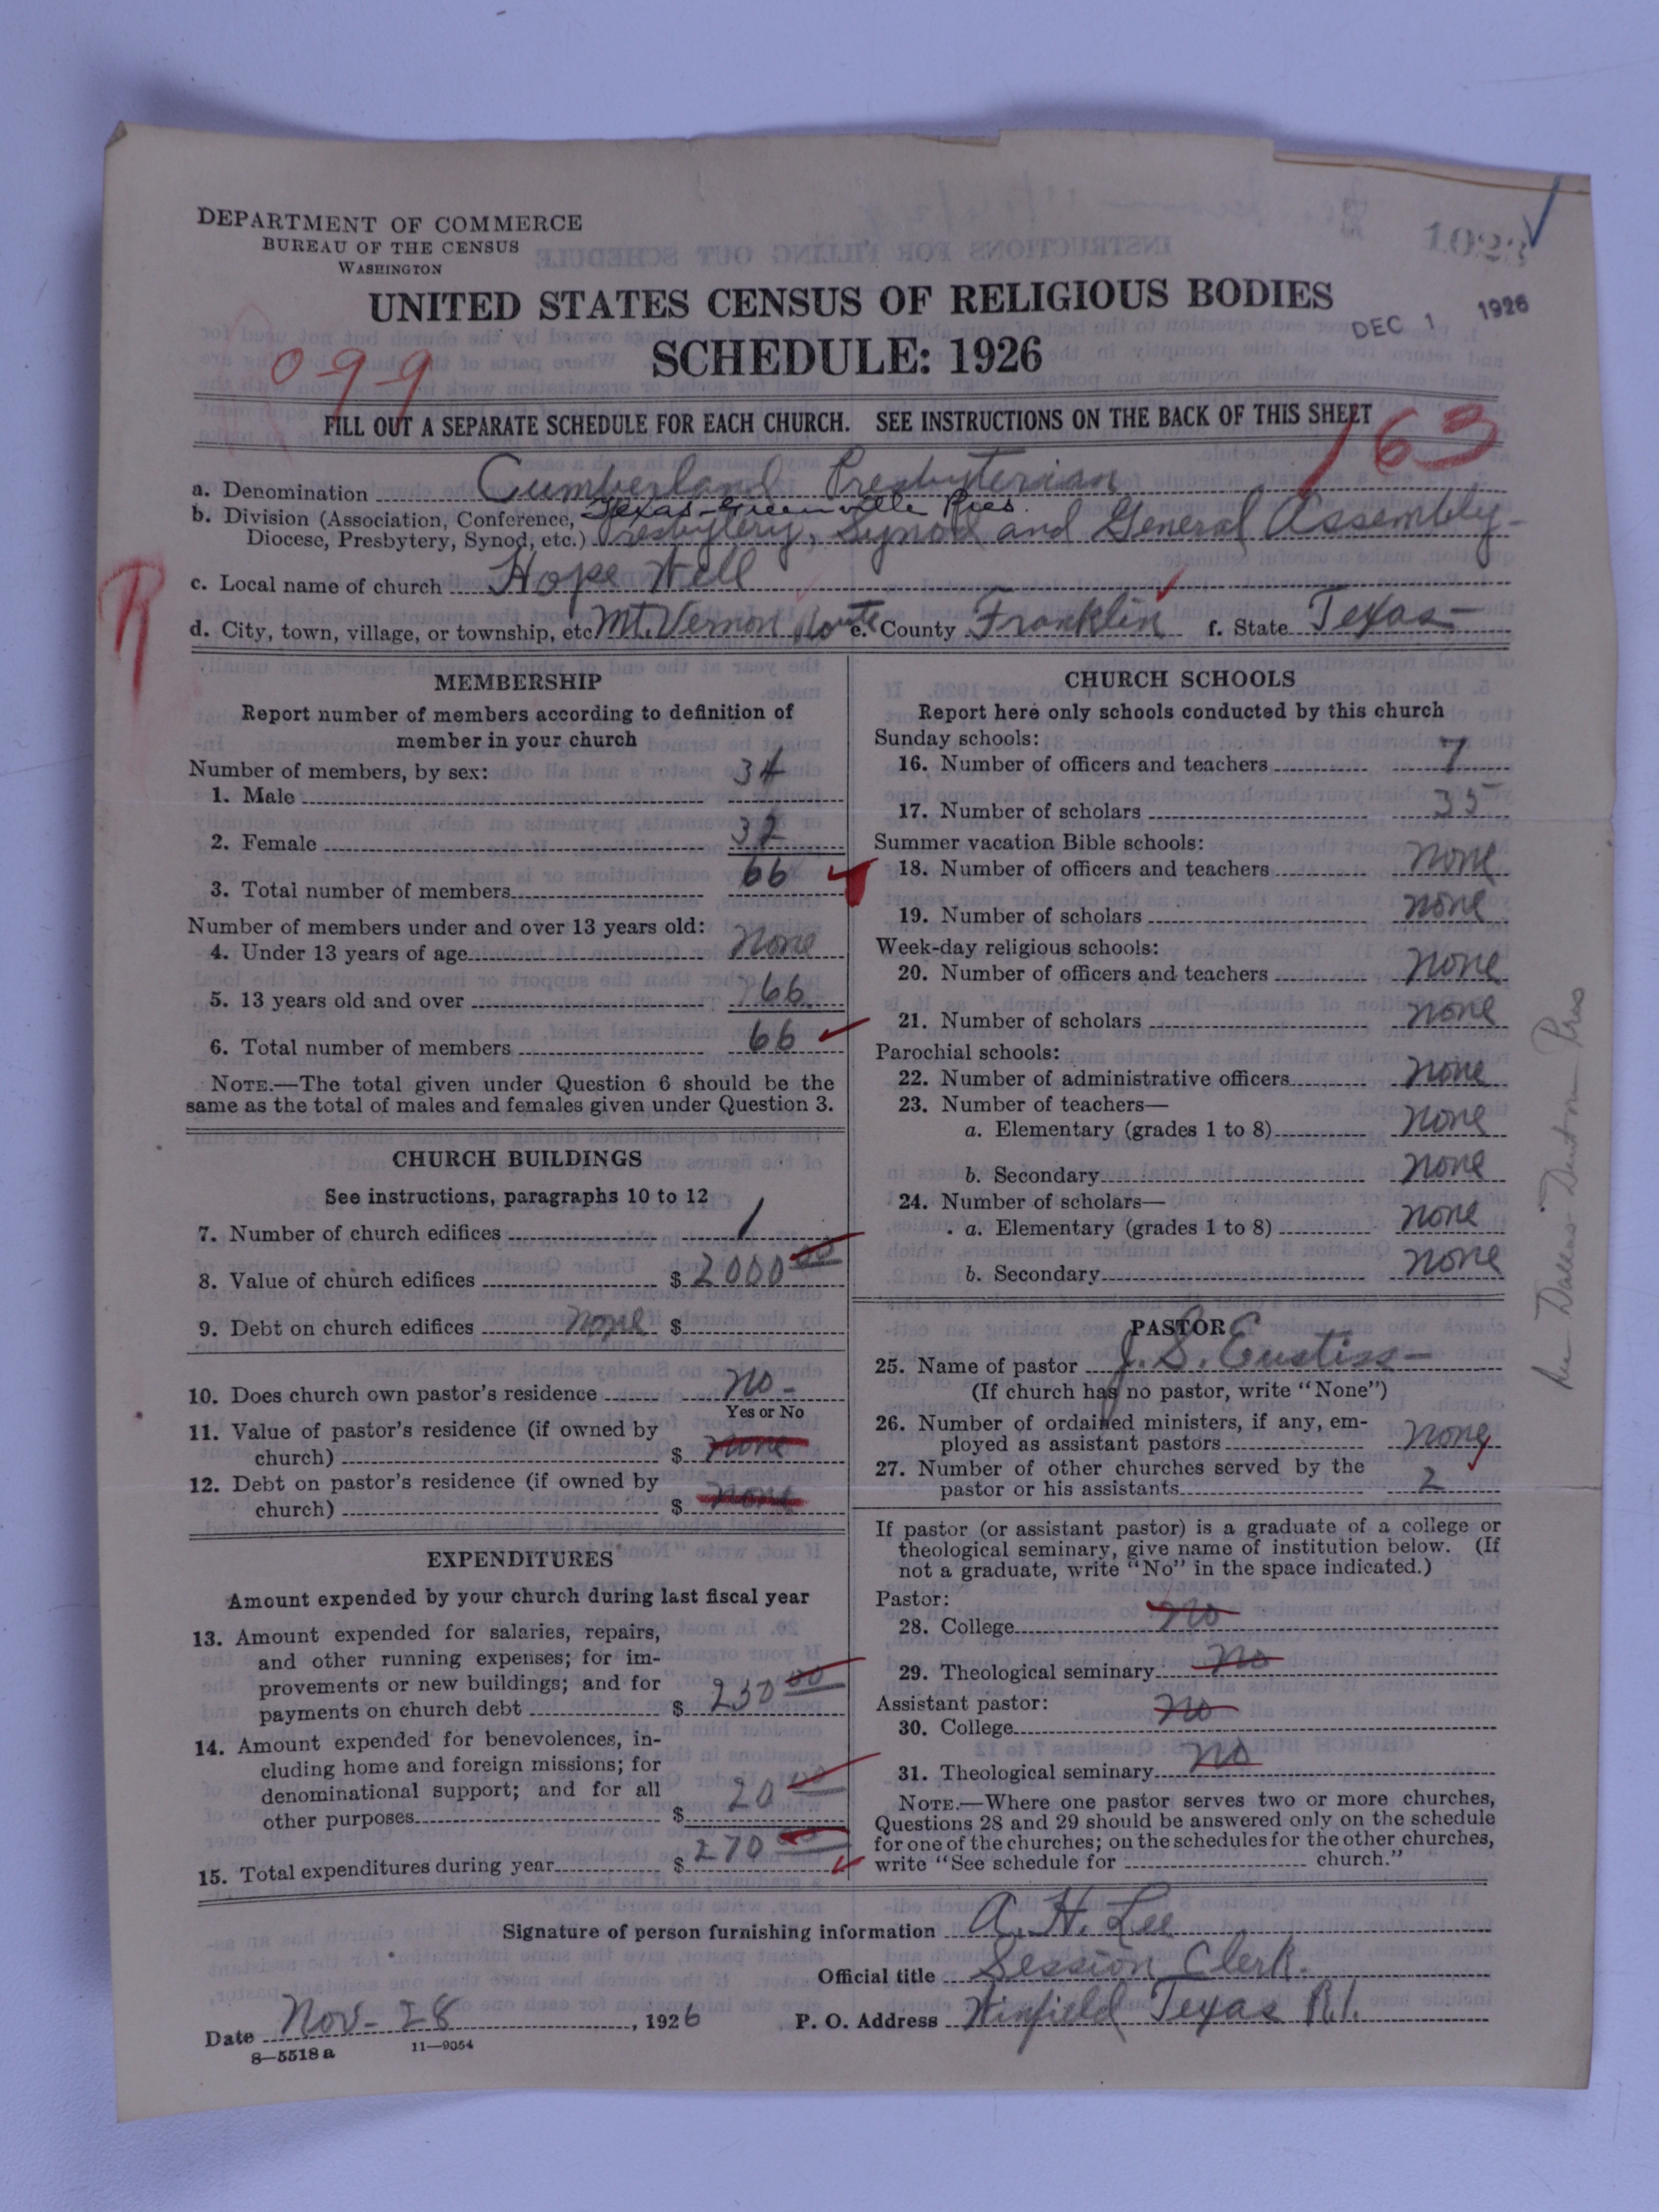 DEPARTMENT OF COMMERCE
BUREAU OF THE CENSUS
WASHINGTON
UNITED STATES CENSUS OF RELIGIOUS BODIES
SCHEDULE: 1926
DEC 1 1926
099
FILL OUT A SEPARATE SCHEDULE FOR EACH CHURCH. SEE INSTRUCTIONS ON THE BACK OF THIS SHEET
163
a. Denomination Cumberland Presbyterian
Texas-Greenville Pres.
b. Division (Association, Conference, Diocese, Presbytery, Synod, etc.) Presbytery, Synod and General Assembly-
c. Local name of church Hope Well
R
d. City, town, village, or township, etc. Mt. Vernon Route e. County Franklin f. State Texas-
MEMBERSHIP
Report number of members according to definition of
member in your church
Number of members, by sex:
1. Male 34
2. Female 32
3. Total number of members 66
Number of members under and over 13 years old:
4. Under 13 years of age None
5. 13 years old and over 66
6. Total number of members 66
NOTE.—The total given under Question 6 should be the
same as the total of males and females given under Question 3.
CHURCH BUILDINGS
See instructions, paragraphs 10 to 12
7. Number of church edifices 1
8. Value of church edifices $ 2000 00
9. Debt on church edifices none $
10. Does church own pastor's residence No-
Yes or No
11. Value of pastor's residence (if owned by
church) $ none
12. Debt on pastor's residence (if owned by
church) $ none
EXPENDITURES
Amount expended by your church during last fiscal year
13. Amount expended for salaries, repairs,
and other running expenses; for im-
provements or new buildings; and for
payments on church debt $ 250 00
14. Amount expended for benevolences, in-
cluding home and foreign missions; for
denominational support; and for all
other purposes $ 20 00
15. Total expenditures during year $ 270 00
CHURCH SCHOOLS
Report here only schools conducted by this church
Sunday schools:
16. Number of officers and teachers 7
17. Number of scholars 35
Summer vacation Bible schools:
18. Number of officers and teachers none
19. Number of scholars none
Week-day religious schools:
20. Number of officers and teachers none
21. Number of scholars none
Parochial schools:
22. Number of administrative officers none
23. Number of teachers—
a. Elementary (grades 1 to 8) none
b. Secondary none
24. Number of scholars—
a. Elementary (grades 1 to 8) none
b. Secondary none
PASTOR
25. Name of pastor J. S. Eustiss-
(If church has no pastor, write "None")
26. Number of ordained ministers, if any, em-
ployed as assistant pastors none
27. Number of other churches served by the
pastor or his assistants 2
If pastor (or assistant pastor) is a graduate of a college or
theological seminary, give name of institution below. (If
not a graduate, write "No" in the space indicated.)
Pastor:
28. College No
29. Theological seminary No
Assistant pastor:
30. College No
31. Theological seminary No
NOTE.—Where one pastor serves two or more churches,
Questions 28 and 29 should be answered only on the schedule
for one of the churches; on the schedules for the other churches,
write "See schedule for church."
Dallas-Denton Pres
Signature of person furnishing information A. H. Lee
Official title Session Clerk.
Date Nov- 28, 1926 P. O. Address Winfield Texas R.1.
8—5518 a 11—9054